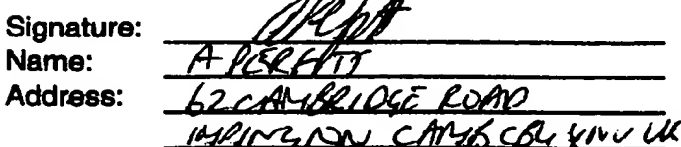 Signature:
Name: A PERFITT
Address: 62 CAMBRIDGE ROAD
IMPINGTON CAMBS CB4 UK